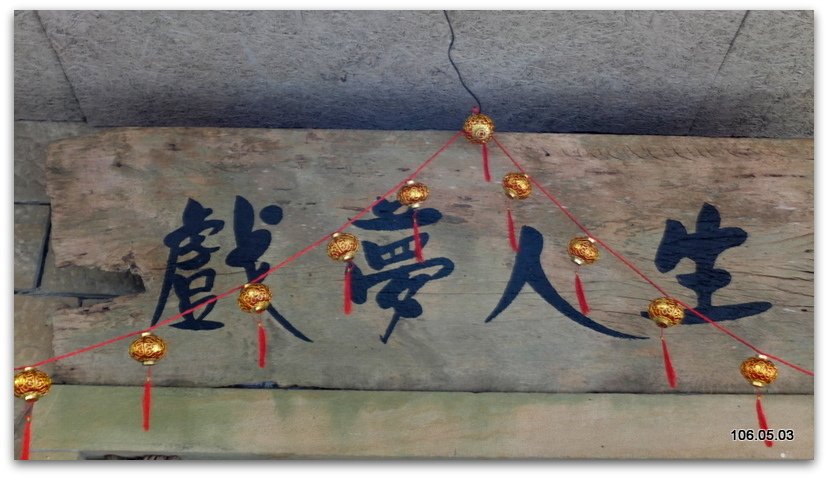 戲夢人生
106.05.03